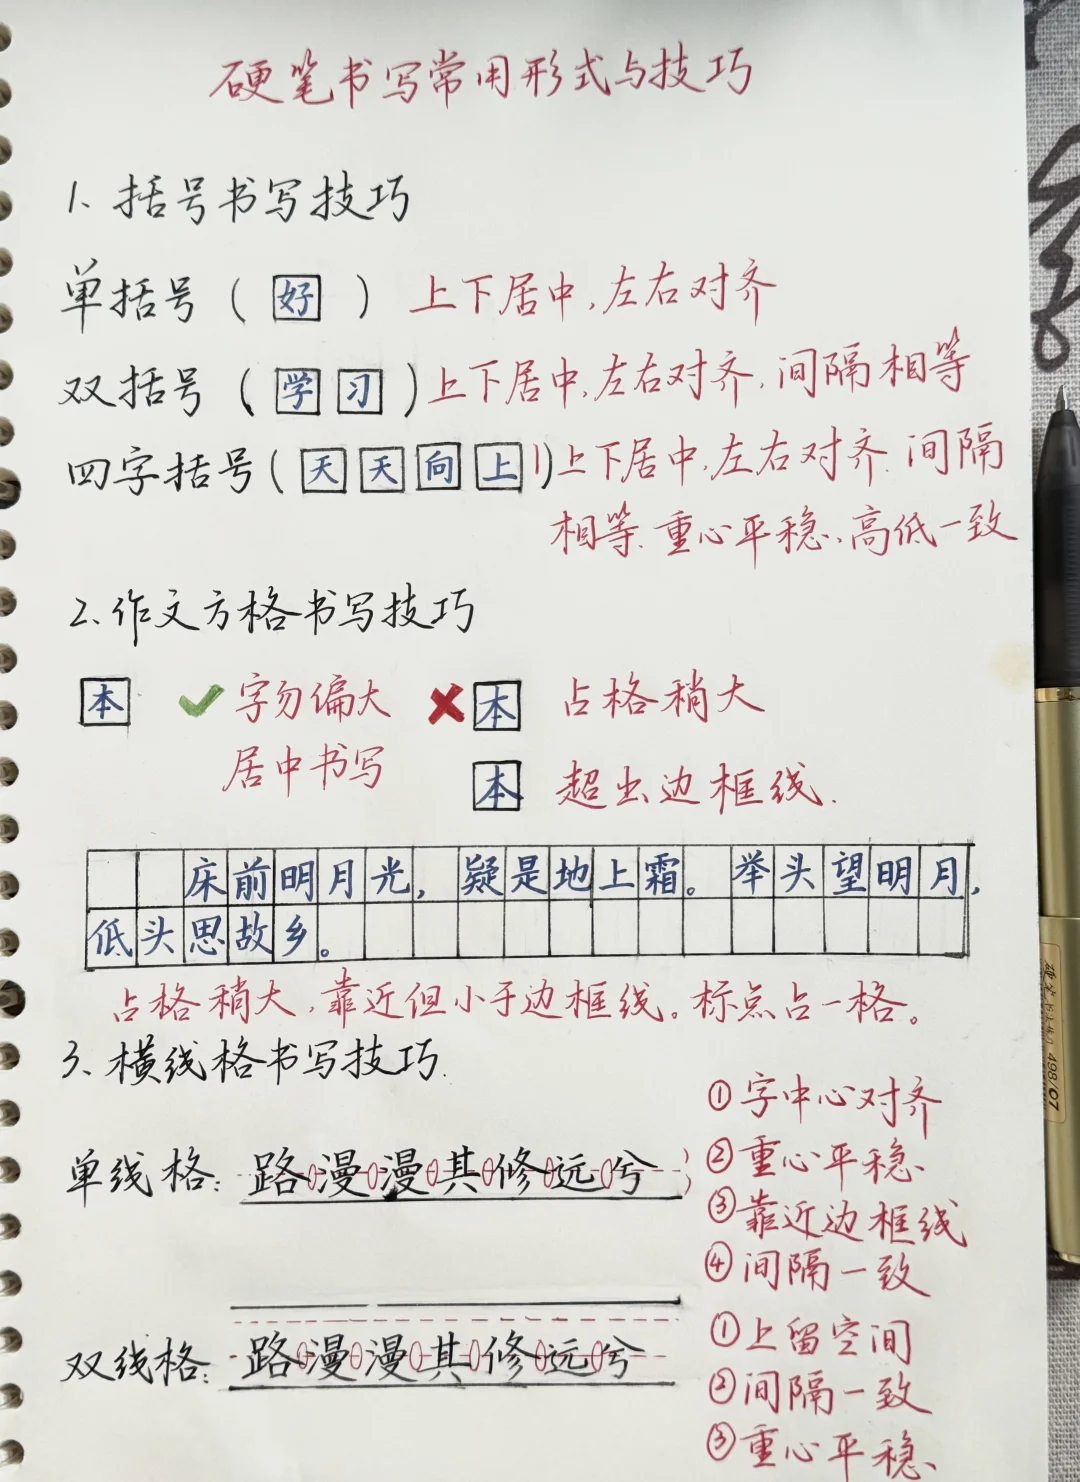 硬笔书写常用形式与技巧
1、括号书写技巧
单括号（好）上下居中,左右对齐
双括号（学习）上下居中,左右对齐,间隔相等
四字括号（天天向上）上下居中,左右对齐、间隔
相等、重心平稳、高低一致
2、作文方格书写技巧
本 ✓ 字勿偏大 ✗ 本 占格稍大
居中书写 本 超出边框线.
床前明月光，疑是地上霜。举头望明月，
低头思故乡。
占格稍大,靠近但小于边框线。标点占一格。
3、横线格书写技巧.
单线格：路漫漫其修远兮
①字中心对齐
②重心平稳、
③靠近边框线
④间隔一致
双线格：路漫漫其修远兮
①上留空间
②间隔一致
③重心平稳、
498 07